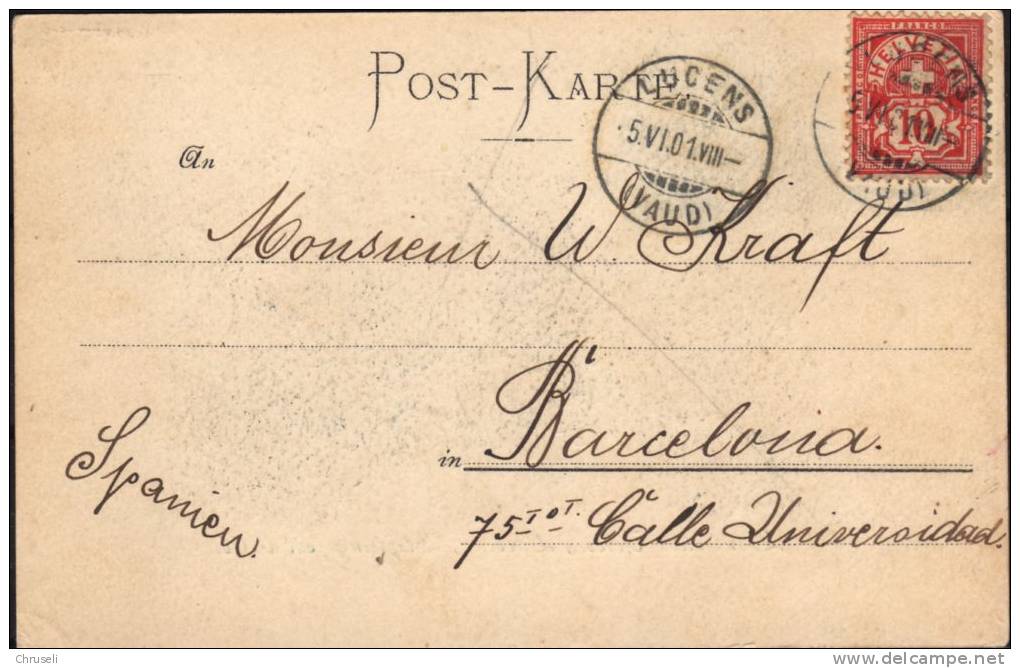 POST-KARTE.
LUCENS
5.VI.01.VIII—
(VAUD)
FRANCO
HELVETIA
10
An
Monsieur W. Kraft
in Barcelona.
Spanien.
75 I° I. Calle Universidad.
Chruseli
delcampe.net